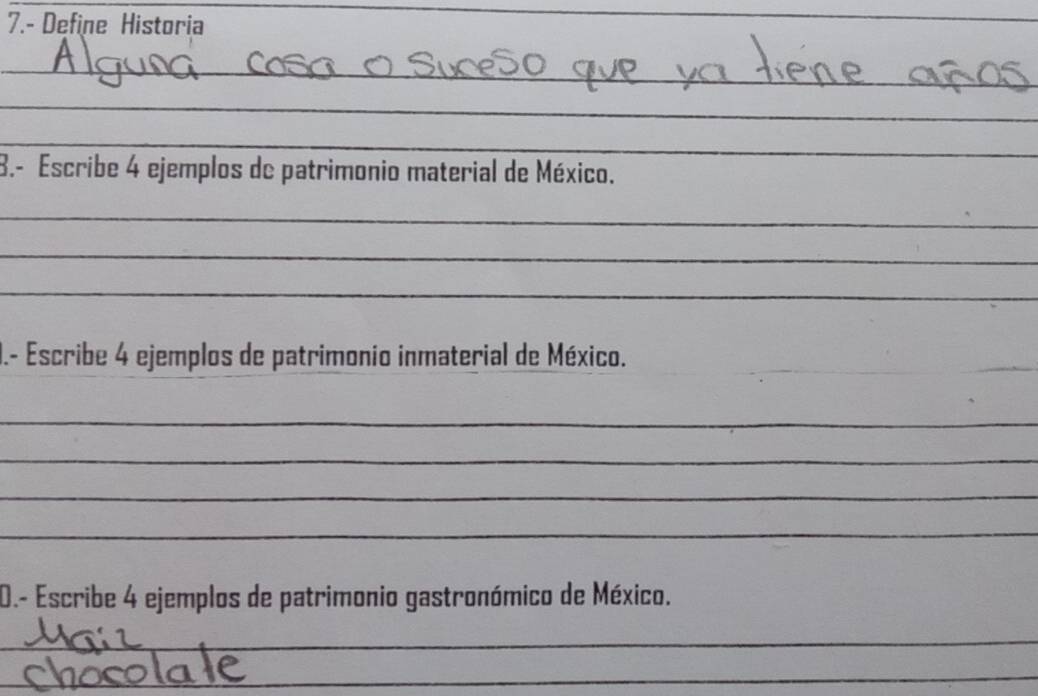 7.- Define Historia
Alguna cosa o suceso que ya tiene años
8.- Escribe 4 ejemplos de patrimonio material de México.
.- Escribe 4 ejemplos de patrimonio inmaterial de México.
0.- Escribe 4 ejemplos de patrimonio gastronómico de México.
Maiz
chocolate